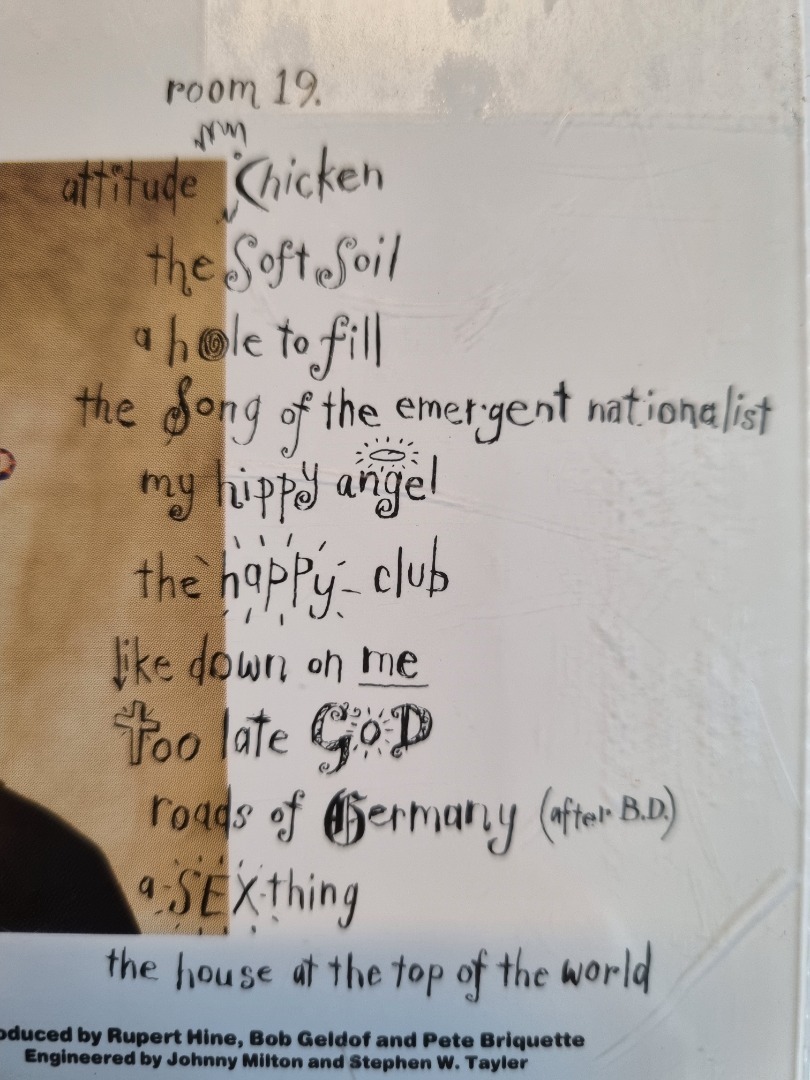 room 19.
attitude Chicken
the Soft Soil
a hole to fill
the Song of the emergent nationalist
my hippy angel
the happy club
like down on me
too late GoD
roads of Germany (after B.D.)
a SEX thing
the house at the top of the world
oduced by Rupert Hine, Bob Geldof and Pete Briquette
Engineered by Johnny Milton and Stephen W. Tayler